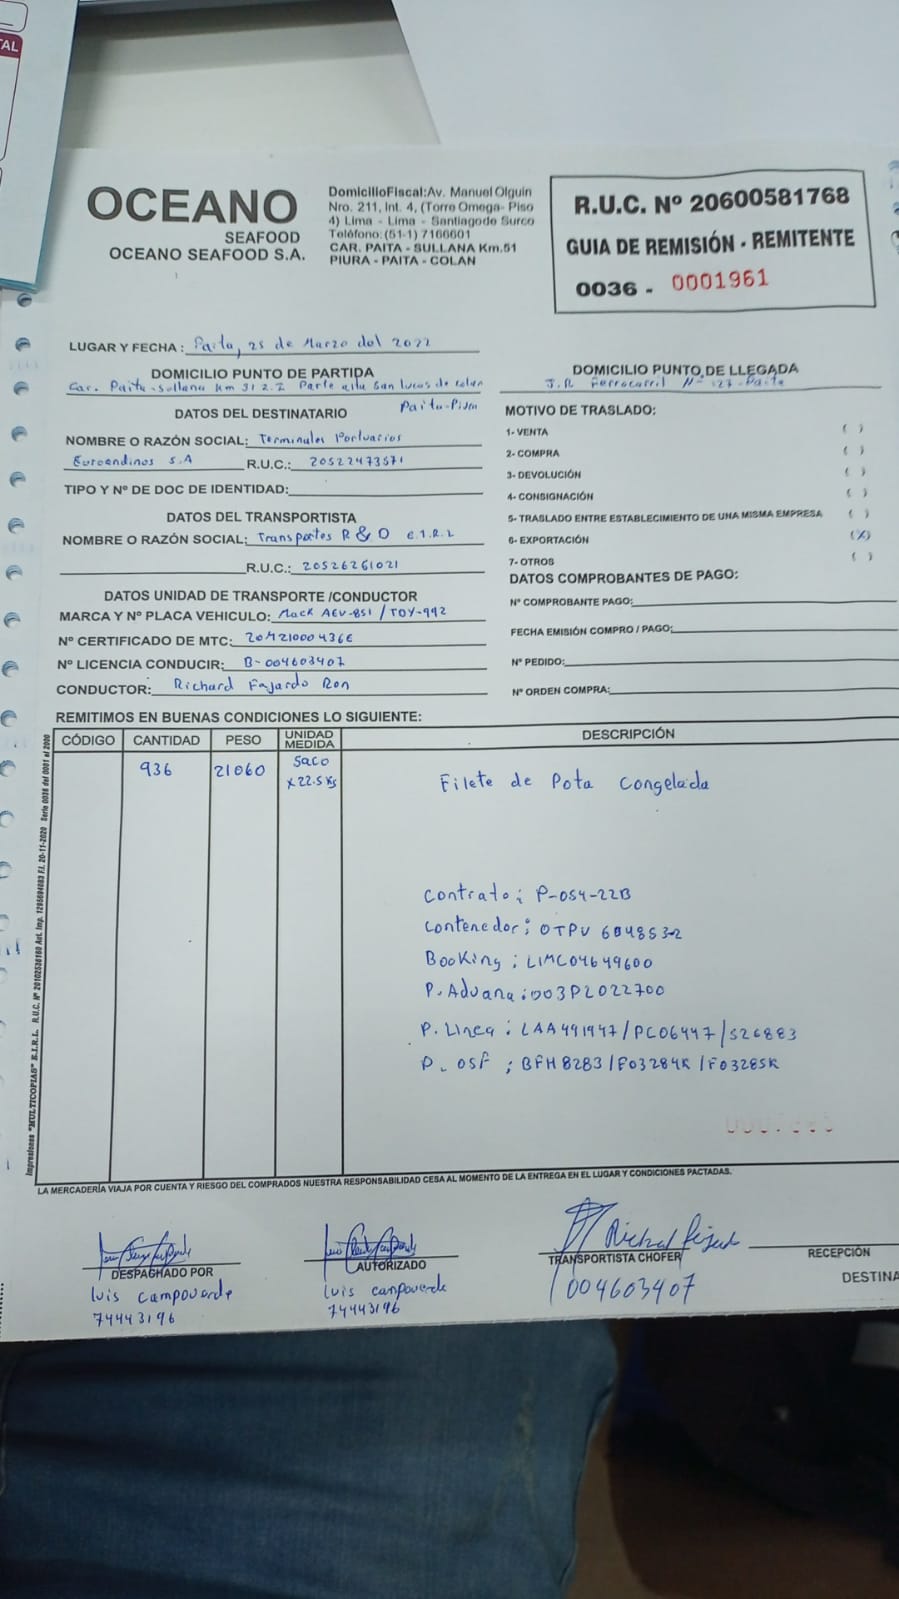 TAL
OCEANO
SEAFOOD
OCEANO SEAFOOD S.A.
DomicilioFiscal:Av. Manuel Olguin
Nro. 211, Int. 4, (Torre Omega- Piso
4) Lima - Lima - Santiagode Surco
Teléfono:(51-1) 7166601
CAR. PAITA - SULLANA Km.51
PIURA - PAITA - COLAN
R.U.C. Nº 20600581768
GUIA DE REMISIÓN - REMITENTE
0036 - 0001961
LUGAR Y FECHA : Paita, 25 de Marzo del 2022
DOMICILIO PUNTO DE PARTIDA
Car. Paita-sullana km 51 Z.I Parte alta San Lucas de colan
Paita-
DOMICILIO PUNTO DE LLEGADA
J.R Ferrocarril Nº 127-Paita
DATOS DEL DESTINATARIO
NOMBRE O RAZÓN SOCIAL: Terminales Portuarios
Euroandinos S.A R.U.C.: 20522473571
TIPO Y Nº DE DOC DE IDENTIDAD:
DATOS DEL TRANSPORTISTA
NOMBRE O RAZÓN SOCIAL: Transportes R & D E.I.R.L
R.U.C.: 20526261021
DATOS UNIDAD DE TRANSPORTE /CONDUCTOR
MARCA Y Nº PLACA VEHICULO: Mack AEV-851 / TOY-992
Nº CERTIFICADO DE MTC: 20M21000436E
Nº LICENCIA CONDUCIR: B-004603407
CONDUCTOR: Richard Fajardo Ron
MOTIVO DE TRASLADO:
1- VENTA ( )
2- COMPRA ( )
3- DEVOLUCIÓN ( )
4- CONSIGNACIÓN ( )
5- TRASLADO ENTRE ESTABLECIMIENTO DE UNA MISMA EMPRESA ( )
6- EXPORTACIÓN (X)
7- OTROS ( )
DATOS COMPROBANTES DE PAGO:
Nº COMPROBANTE PAGO:
FECHA EMISIÓN COMPRO / PAGO:
Nº PEDIDO:
Nº ORDEN COMPRA:
REMITIMOS EN BUENAS CONDICIONES LO SIGUIENTE:
CÓDIGO CANTIDAD PESO UNIDAD MEDIDA DESCRIPCIÓN
936 21060 Saco
x 22.5 Kg
Filete de Pota Congelada
Contrato: P-054-22B
Contenedor: OTPU 604853-2
Booking: LIMC04649600
P. Aduana: 003PL022700
P. Linea: LAA491947/PC06447/526883
P. OSF: BFH8283/F03284K/F03285K
Impresiones "MULTICOPIAS" E.I.R.L. R.U.C. Nº 20102536160 Aut. Imp. 1295694083 F.I. 20-11-2020 Serie 0036 del 0001 al 2000
LA MERCADERÍA VIAJA POR CUENTA Y RIESGO DEL COMPRADOS NUESTRA RESPONSABILIDAD CESA AL MOMENTO DE LA ENTREGA EN EL LUGAR Y CONDICIONES PACTADAS.
DESPACHADO POR
Luis Campoverde
74443196
AUTORIZADO
Luis Campoverde
74443196
TRANSPORTISTA CHOFER
004603407
RECEPCIÓN
DESTINA